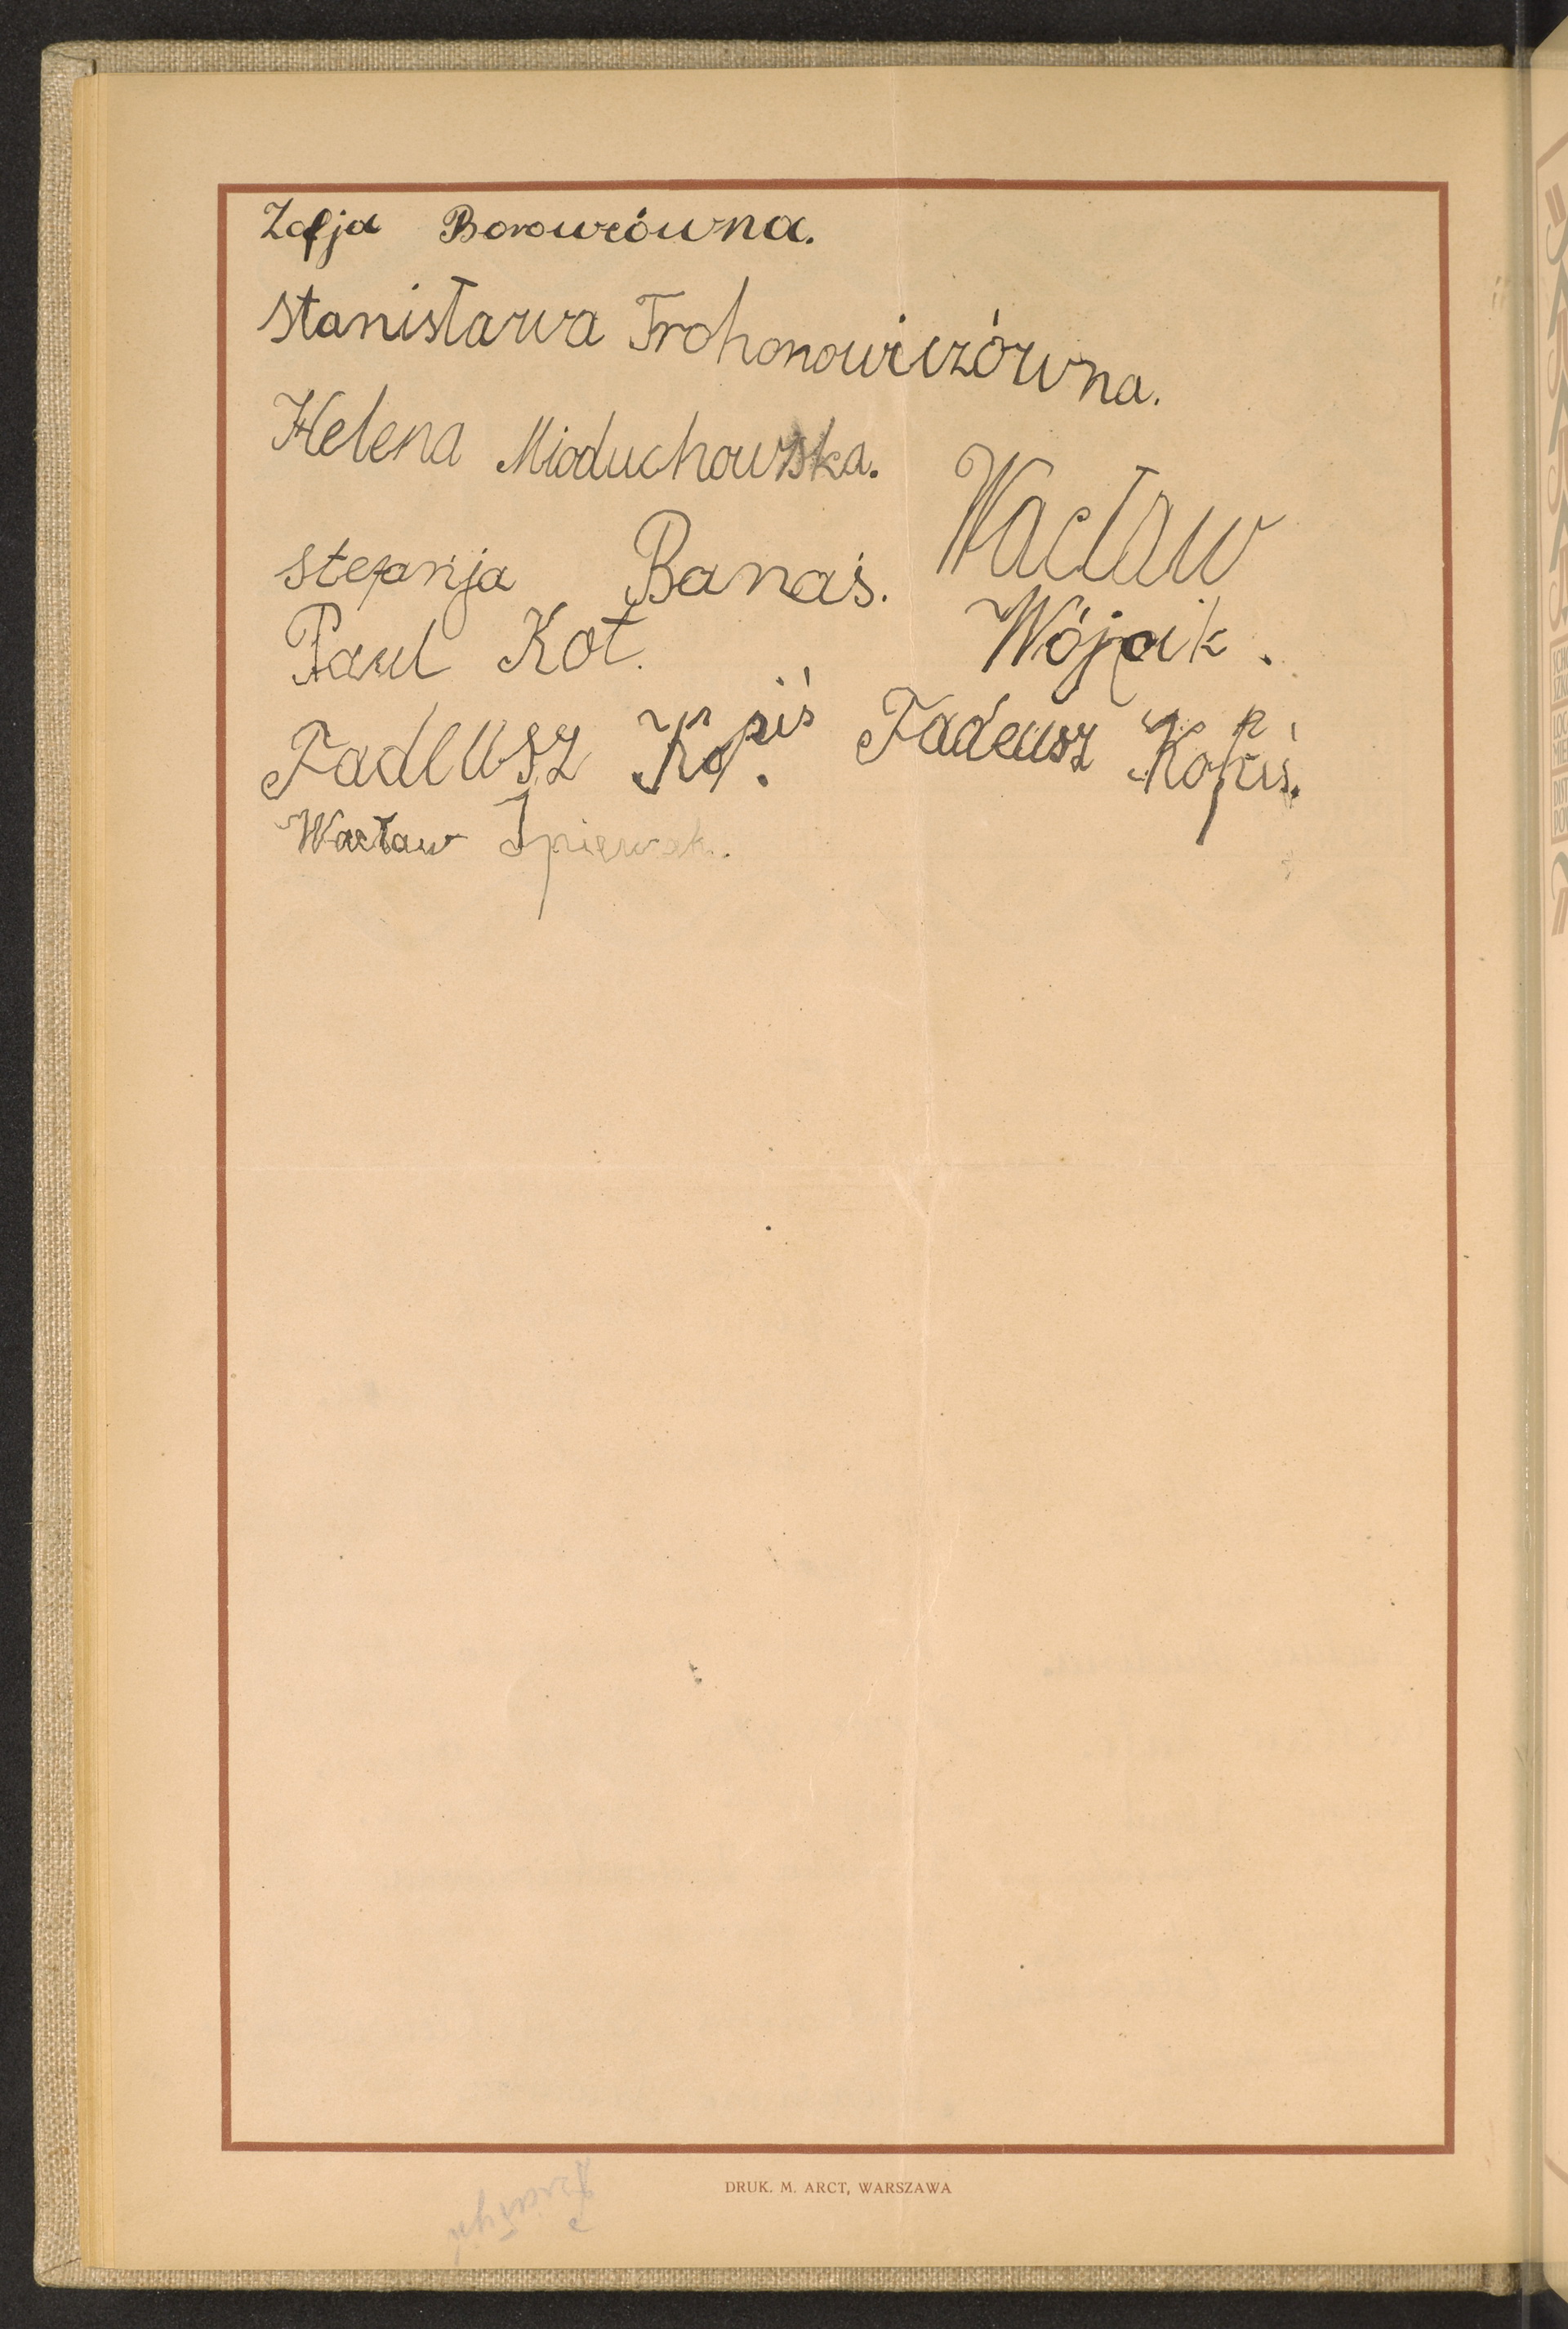 Zofja Borowcówna.
Stanisława Trohonowiczówna.
Helena Mioduchowska.
Wacław
Stefanja Banaś.
Paweł Kot.
Wójcik.
Tadeusz Kopiś
Tadeusz Kopiś.
Wacław Śpiewak.
DRUK. M. ARCT, WARSZAWA